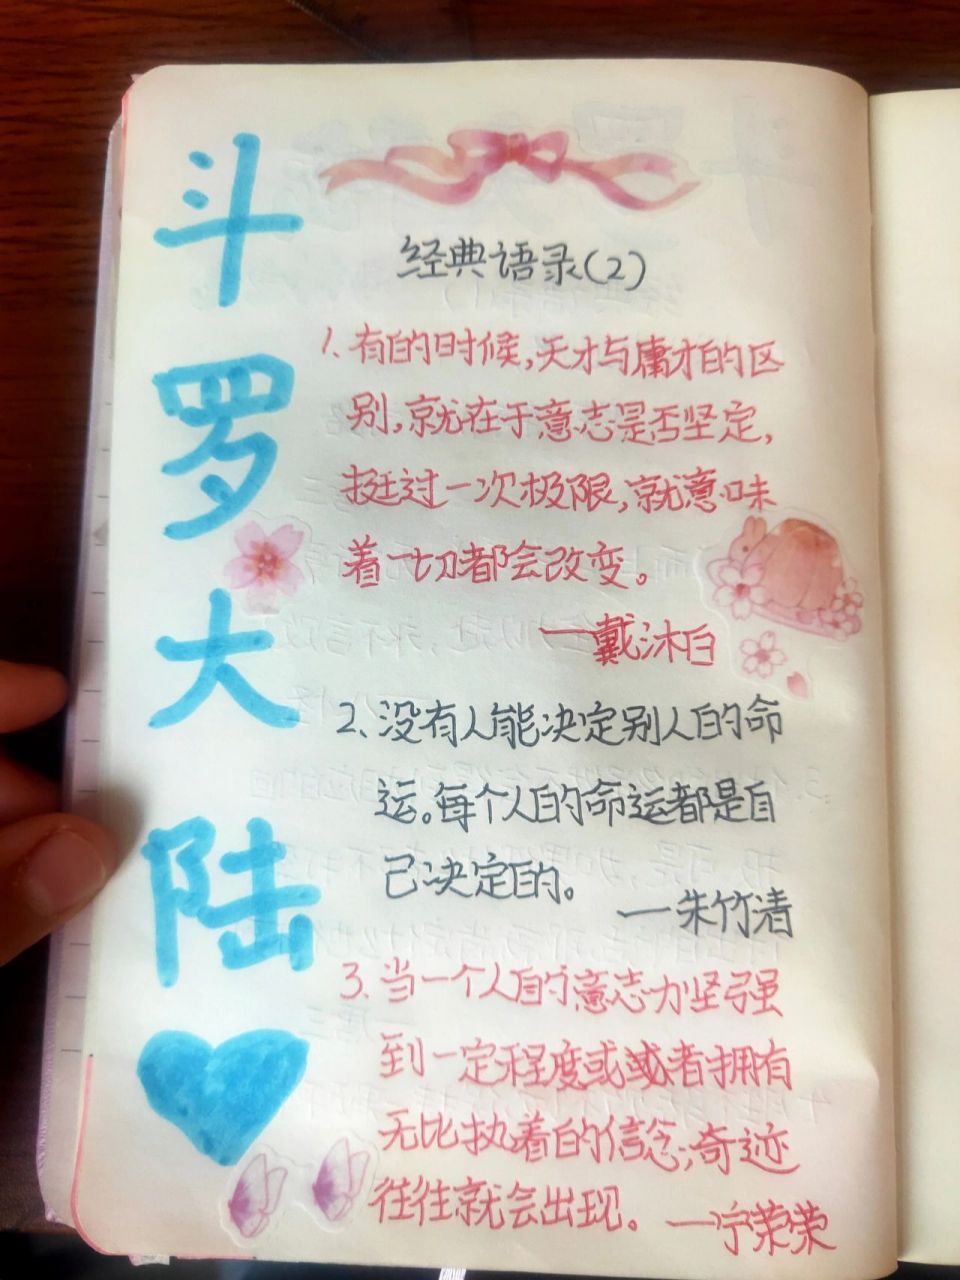 斗罗大陆
经典语录(2)
1、有的时候,天才与庸才的区
别,就在于意志是否坚定,
挺过一次极限,就意味
着一切都会改变。
——戴沐白
2、没有人能决定别人的命
运。每个人的命运都是自
己决定的。
——朱竹清
3、当一个人的意志力坚强
到一定程度或或者拥有
无比执着的信念;奇迹
往往就会出现。
——宁荣荣